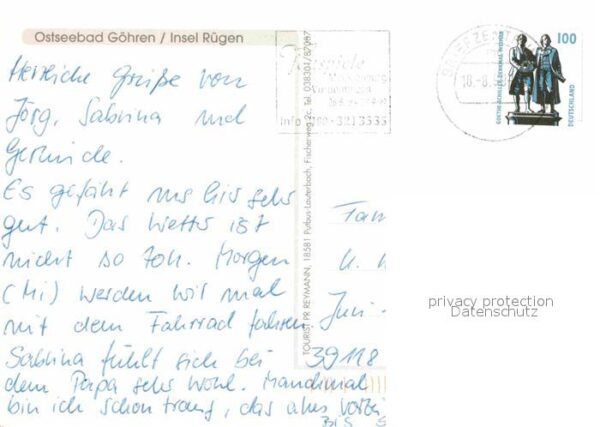 Ostseebad Göhren / Insel Rügen
Herzliche Grüße von
Jörg, Sabrina und
Gerlinde.
Es gefällt uns hier sehr
gut. Das Wetter ist
nicht so toll. Morgen
(Mi) werden wir mal
mit dem Fahrrad fahren.
Sabrina fühlt sich bei
dem Papa sehr wohl. Manchmal
bin ich schon traurig, das alles vorbei
Bis
TOURIST PR REYMANN, 18581 Putbus-Lauterbach, Fischerweg 2c, Tel. 038301/87087
Info
BRIEFZENT
18.-8.
GOETHE-SCHILLER-DENKMAL WEIMAR
100
DEUTSCHLAND
Fam
39118
privacy protection
Datenschutz